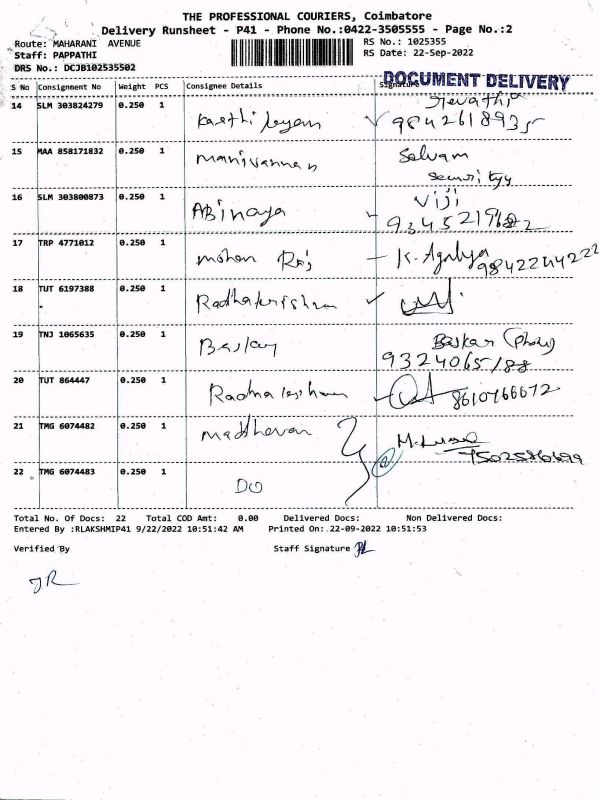 THE PROFESSIONAL COURIERS, Coimbatore
Delivery Runsheet - P41 - Phone No.:0422-3505555 - Page No.:2
Route: MAHARANI AVENUE
RS No.: 1025355
Staff: PAPPATHI
RS Date: 22-Sep-2022
DRS No.: DCJB102535502
DOCUMENT DELIVERY
S No Consignment No Weight PCS Consignee Details Signature
14 SLM 303824279 0.250 1
15 MAA 858171832 0.250 1 Manivannan Selvam
Security
16 SLM 303800873 0.250 1 ABinaya Viji
17 TRP 4771012 0.250 1 mohan Raj K. Agalya
9842244222
18 TUT 6197388 0.250 1 Radhakrishnan
-
19 TNJ 1065635 0.250 1 Baskar Baskar
9324065188
20 TUT 864447 0.250 1
8610766672
21 TMG 6074482 0.250 1 Madhavan
7502586699
22 TMG 6074483 0.250 1 DO
Total No. Of Docs: 22 Total COD Amt: 0.00 Delivered Docs: Non Delivered Docs:
Entered By :RLAKSHMIP41 9/22/2022 10:51:42 AM Printed On: 22-09-2022 10:51:53
Verified By Staff Signature
JR